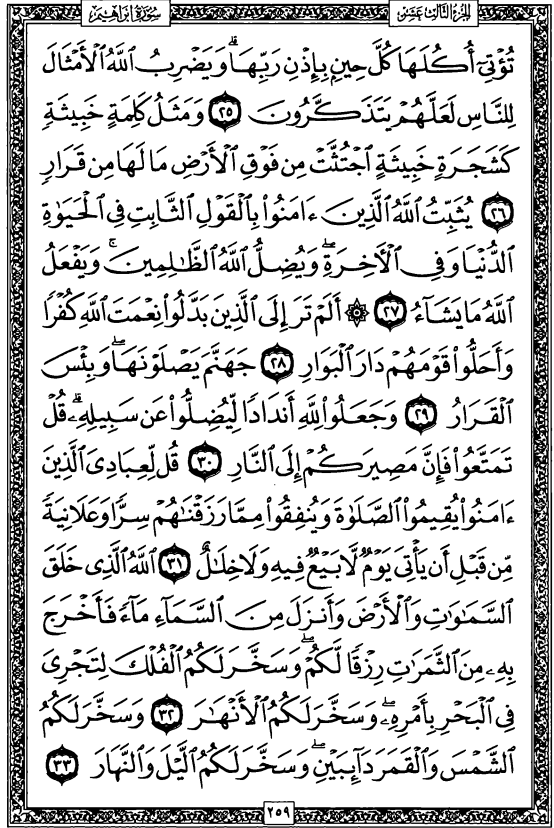 الجزء الثالث عشر سورة ابراهيم
تُؤْتِىٓ أُكُلَهَا كُلَّ حِينِۭ بِإِذْنِ رَبِّهَاۗ وَيَضْرِبُ ٱللَّهُ ٱلْأَمْثَالَ
لِلنَّاسِ لَعَلَّهُمْ يَتَذَكَّرُونَ ٢٥ وَمَثَلُ كَلِمَةٍ خَبِيثَةٍ
كَشَجَرَةٍ خَبِيثَةٍ ٱجْتُثَّتْ مِن فَوْقِ ٱلْأَرْضِ مَا لَهَا مِن قَرَارٍ
٢٦ يُثَبِّتُ ٱللَّهُ ٱلَّذِينَ ءَامَنُوا۟ بِٱلْقَوْلِ ٱلثَّابِتِ فِى ٱلْحَيَوٰةِ
ٱلدُّنْيَا وَفِى ٱلْأَخِرَةِۖ وَيُضِلُّ ٱللَّهُ ٱلظَّٰلِمِينَۚ وَيَفْعَلُ
ٱللَّهُ مَا يَشَآءُ ٢٧ ۞ أَلَمْ تَرَ إِلَى ٱلَّذِينَ بَدَّلُوا۟ نِعْمَتَ ٱللَّهِ كُفْرًا
وَأَحَلُّوا۟ قَوْمَهُمْ دَارَ ٱلْبَوَارِ ٢٨ جَهَنَّمَ يَصْلَوْنَهَاۖ وَبِئْسَ
ٱلْقَرَارُ ٢٩ وَجَعَلُوا۟ لِلَّهِ أَندَادًا لِّيُضِلُّوا۟ عَن سَبِيلِهِۦۗ قُلْ
تَمَتَّعُوا۟ فَإِنَّ مَصِيرَكُمْ إِلَى ٱلنَّارِ ٣٠ قُل لِّعِبَادِىَ ٱلَّذِينَ
ءَامَنُوا۟ يُقِيمُوا۟ ٱلصَّلَوٰةَ وَيُنفِقُوا۟ مِمَّا رَزَقْنَٰهُمْ سِرًّا وَعَلَانِيَةً
مِّن قَبْلِ أَن يَأْتِىَ يَوْمٌ لَّا بَيْعٌ فِيهِ وَلَا خِلَٰلٌ ٣١ ٱللَّهُ ٱلَّذِى خَلَقَ
ٱلسَّمَٰوَٰتِ وَٱلْأَرْضَ وَأَنزَلَ مِنَ ٱلسَّمَآءِ مَآءً فَأَخْرَجَ
بِهِۦ مِنَ ٱلثَّمَرَٰتِ رِزْقًا لَّكُمْۖ وَسَخَّرَ لَكُمُ ٱلْفُلْكَ لِتَجْرِىَ
فِى ٱلْبَحْرِ بِأَمْرِهِۦۖ وَسَخَّرَ لَكُمُ ٱلْأَنْهَٰرَ ٣٢ وَسَخَّرَ لَكُمُ
ٱلشَّمْسَ وَٱلْقَمَرَ دَآئِبَيْنِۖ وَسَخَّرَ لَكُمُ ٱلَّيْلَ وَٱلنَّهَارَ ٣٣
٢٥٩